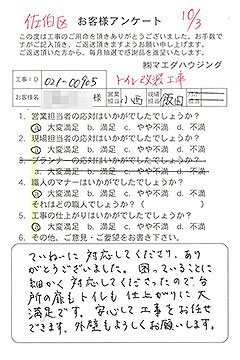 佐伯区 お客様アンケート 10/3
この度は工事のご用命を頂きありがとうございました。お手数で
すがご記入頂き、ご返送頂きますようお願い申し上げます。
ご返送頂いた方から、毎月抽選で感謝品を進呈いたします。
㈱マエダハウジング
工事ID 021-00965 トイレ改装工事
お客様名 様 営業担当 小西 現場担当 飯田
1. 営業担当者の応対はいかがでしたでしょうか?
a. 大変満足 b. 満足 c. やや不満 d. 不満
2. 現場担当者の応対はいかがでしたでしょうか?
a. 大変満足 b. 満足 c. やや不満 d. 不満
3. プランナーの応対はいかがでしたでしょうか?
a. 大変満足 b. 満足 c. やや不満 d. 不満
4. 職人のマナーはいかがでしたでしょうか?
a. 大変満足 b. 満足 c. やや不満 d. 不満
それはどの職人でしょうか?( )
5. 工事の仕上がりはいかがでしたでしょうか?
a. 大変満足 b. 満足 c. やや不満 d. 不満
6. その他、ご意見・ご要望をお書き下さい。
ていねいに対応してくださり、あり
がとうございました。困っていることに
細かく対応してくださったので、台
所の扉もトイレも仕上がりに大
満足です。安心して工事をお任せ
できます。外壁もよろしくお願いします。